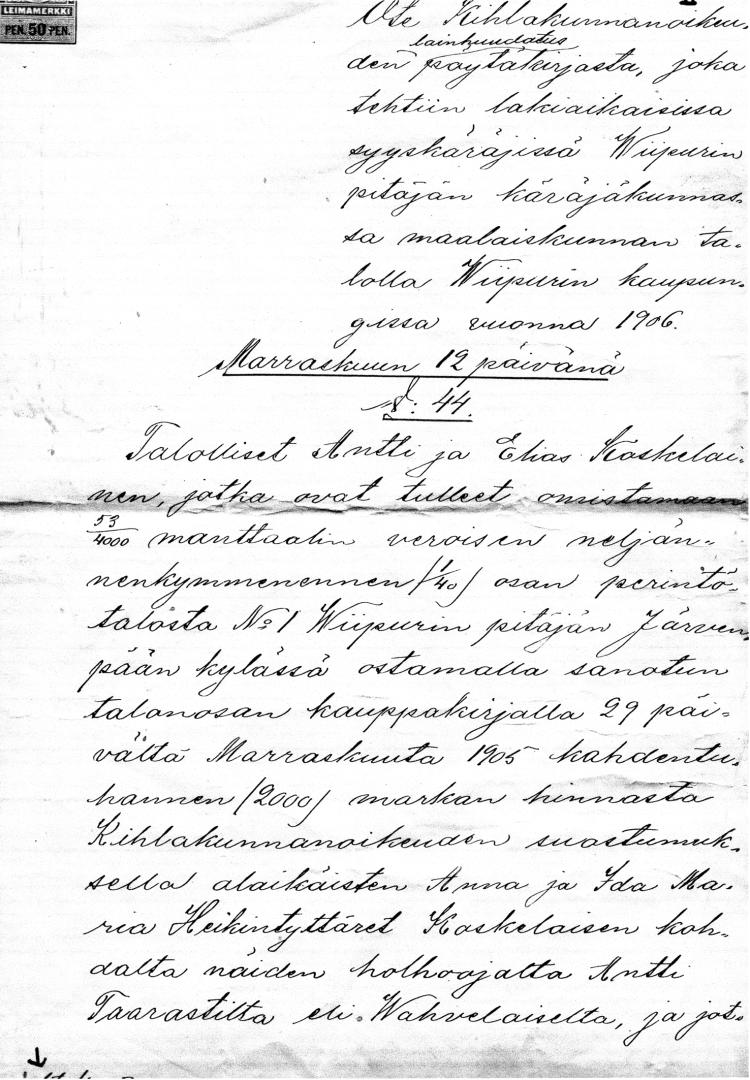 LEIMAMERKKI
PEN. 50 PEN.
Ote Kihlakunnanoikeu-
lainhuudatus
den pöytäkirjasta, joka
tehtiin lakiaikaisissa
syyskäräjissä Wiipurin
pitäjän käräjäkunnas-
sa maalaiskunnan ta-
lolla Wiipurin kaupun-
gissa vuonna 1906.
Marraskuun 12 päivänä
§: 44.
Talolliset Antti ja Elias Koskelai-
nen, jotka ovat tulleet omistamaan
53/4000 manttaalin veroisen neljän-
nenkymmenennen (1/40) osan perintö-
talosta No 1 Wiipurin pitäjän Järven-
pään kylässä ostamalla sanotun
talonosan kauppakirjalla 29 päi-
vältä Marraskuuta 1905 kahdentu-
hannen (2000) markan hinnasta
Kihlakunnanoikeuden suostumuk-
sella alaikäisten Anna ja Ida Ma-
ria Heikintyttäret Koskelaisen koh-
dalta näiden holhoojalta Antti
Taarastilta eli Wahvelaiselta, ja jot-